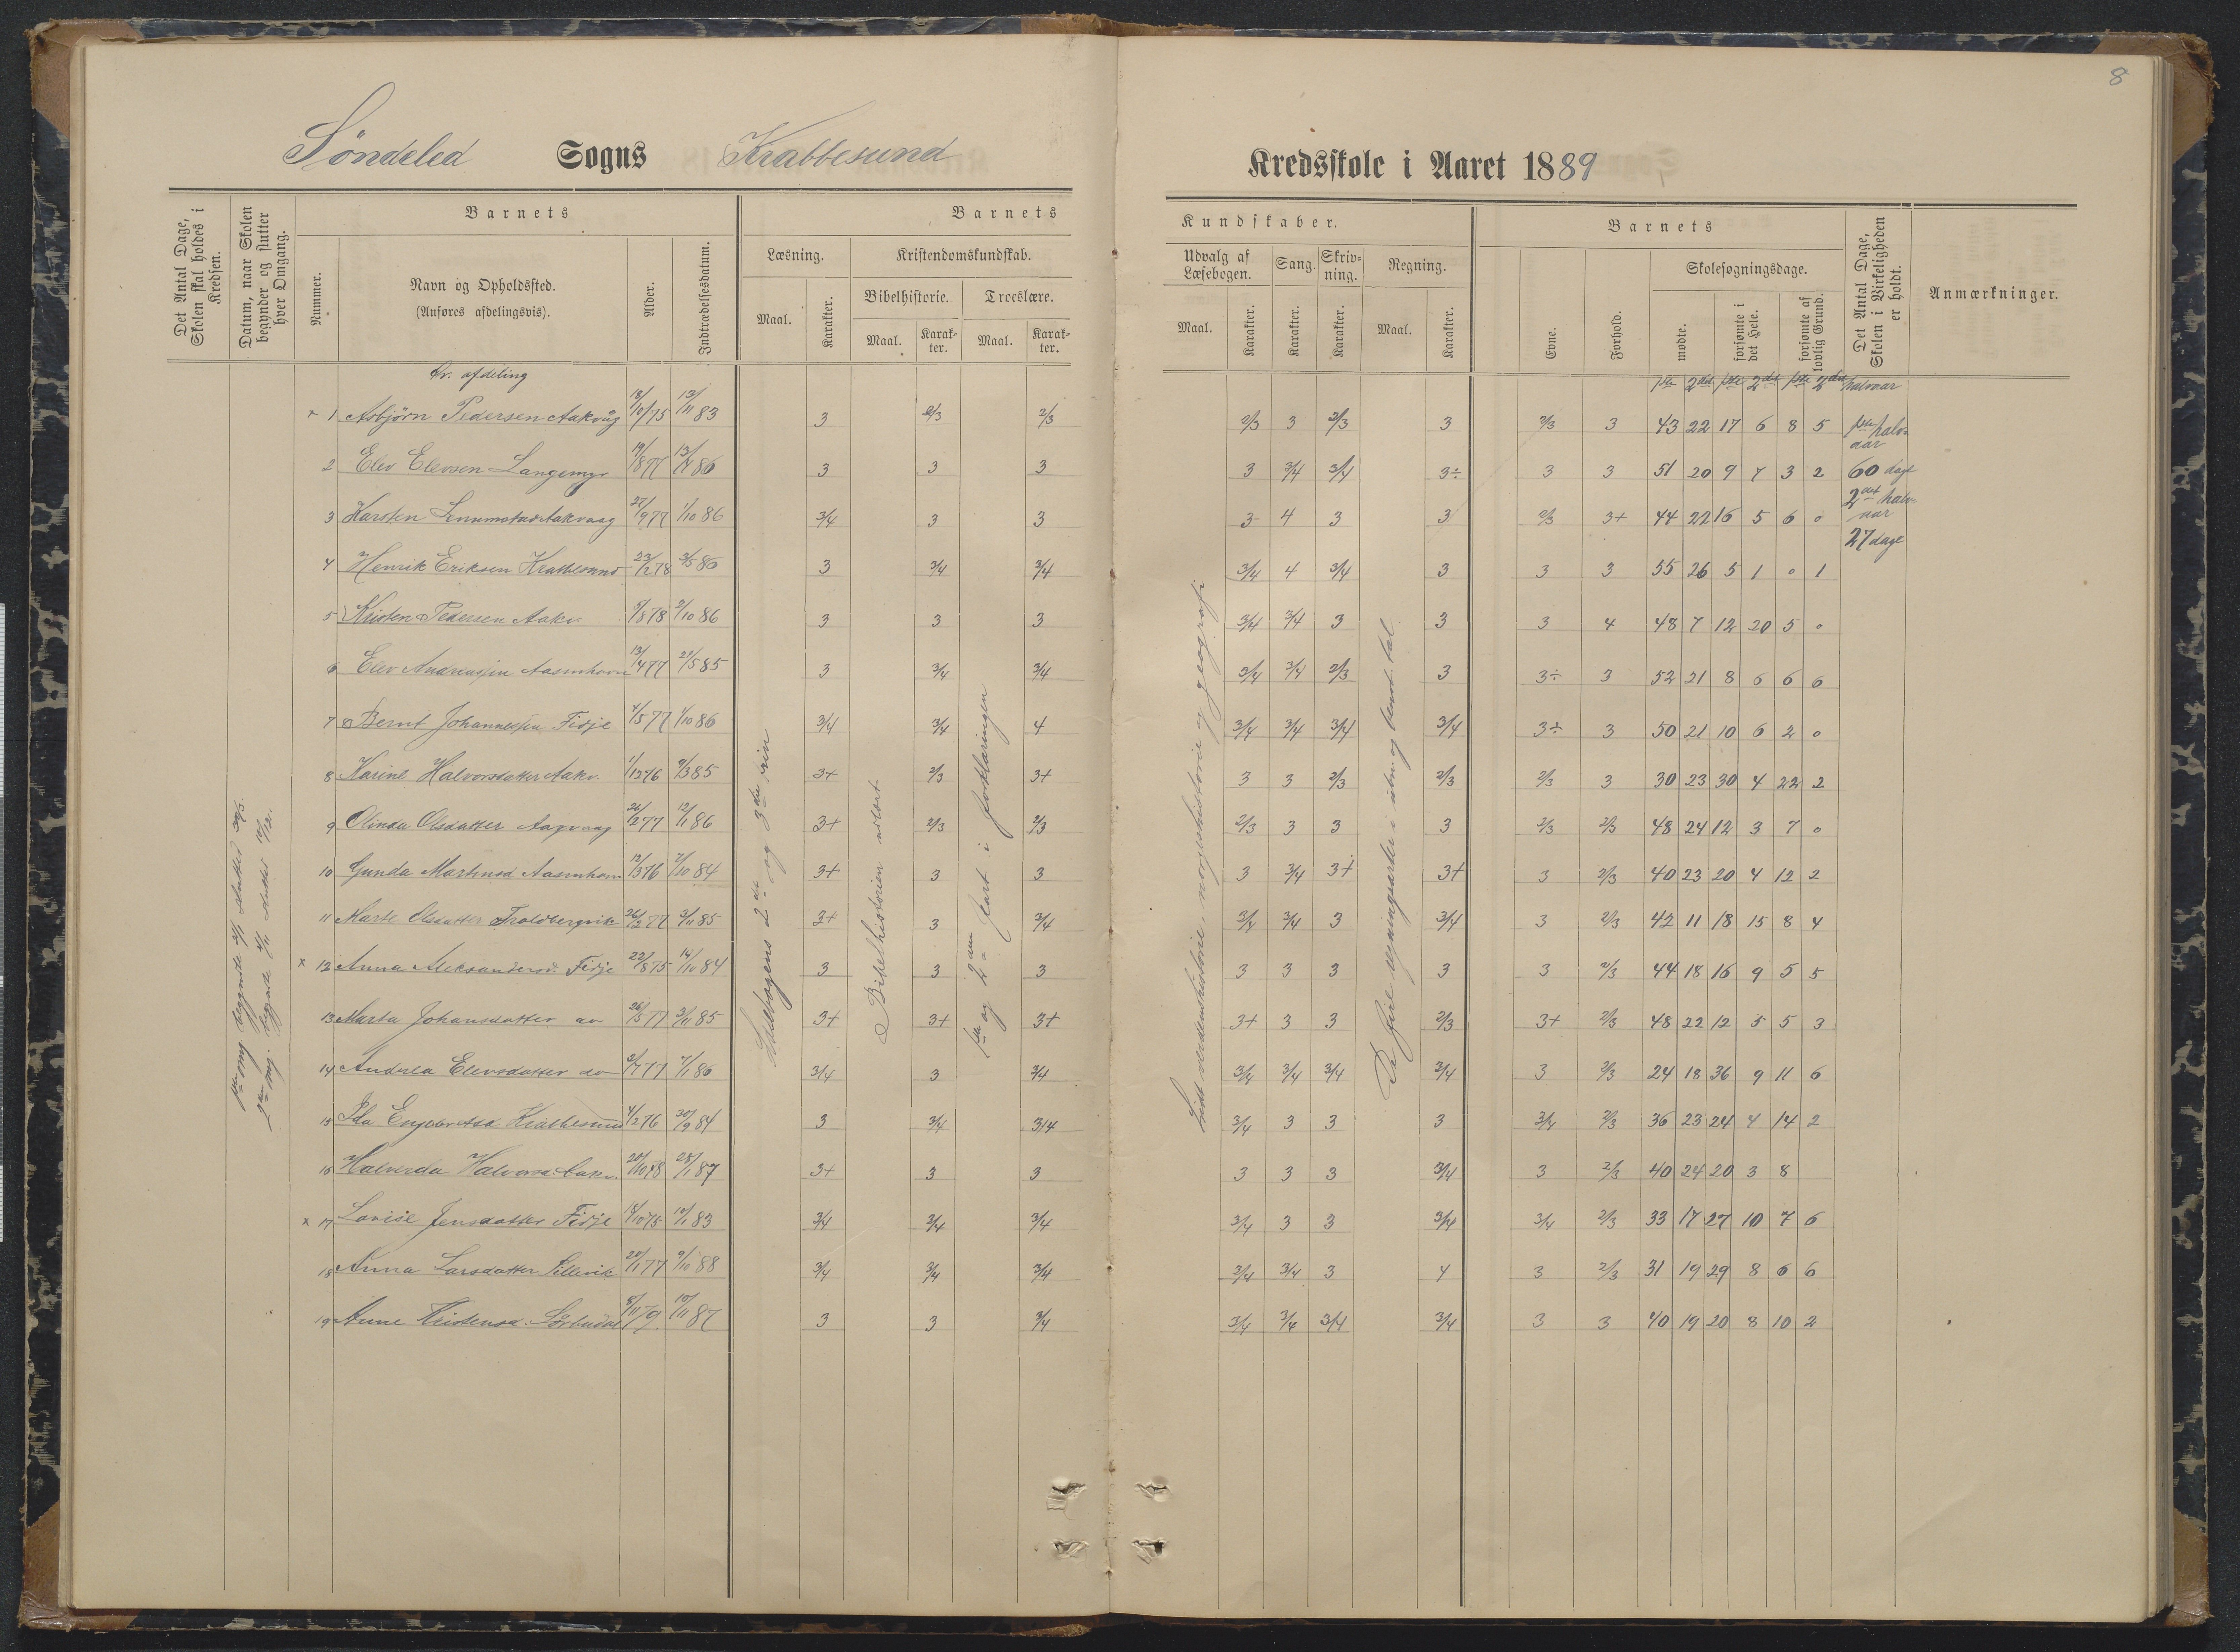 8
Søndeled Sogns Krabbesund Kredsskole i Aaret 1889
Det Antal Dage, Skolen skal holdes i Kredsen.
Datum, naar Skolen begynder og slutter hver Omgang.
Barnets
Nummer.
Navn og Opholdssted.
(Anføres afdelingsvis).
Alder.
Indtrædelsesdatum.
Barnets Kundskaber.
Læsning.
Maal.
Karakter.
Kristendomskundskab.
Bibelhistorie.
Maal.
Karakter.
Troeslære.
Maal.
Karakter.
Udvalg af Læsebogen.
Maal.
Karakter.
Sang.
Karakter.
Skrivning.
Karakter.
Regning.
Maal.
Karakter.
Barnets
Evne.
Forhold.
Skolesøgningsdage.
mødte.
forsømte i det Hele.
forsømte af lovlig Grund.
Det Antal Dage, Skolen i Virkeligheden er holdt.
Anmærkninger.
afdeling
1ste 2det 1ste 2det 1ste 2det halvaar
× 1 Asbjørn Pedersen Aakvåg 18/10/75 12/11 83 3 2/3 2/3 2/3 3 2/3 3 2/3 3 43 22 17 6 8 5
2 Elev Elevsen Langemyr 3 3 3 3 3/4 3/4 3÷ 3 3 51 20 9 7 3 2
3 Karsten Aakvaag 27/9 77 1/10 86 3/4 3 3 3 4 3 3 2/3 3+ 44 22 16 5 6 0
4 Henrik Eriksen Krabbesund 23/12 78 3/5 86 3 3/4 3/4 3/4 4 3/4 3 3 3 55 26 5 1 0 1
5 Kristen Pedersen Aakv. 2/10 86 3 3 3 3/4 3/4 3 3 3 4 48 7 12 20 5 0
6 Elev Andreassen Aasmhavn 13/4 77 21/5 85 3 3/4 3/4 3/4 3/4 2/3 3 3÷ 3 52 21 8 6 6 6
7 Bernt Johannessen Fidje 4/5 77 1/10 86 3/4 3/4 4 3/4 3/4 3/4 3/4 3÷ 3 50 21 10 6 2 0
8 Karine Halvorsdatter Aakv. 1/12 76 9/3 85 3+ 2/3 3+ 3 3 2/3 2/3 2/3 3 30 23 30 4 22 2
9 Olinda Olsdatter 26/2 77 12/1 86 3+ 2/3 2/3 2/3 3 3 3 2/3 2/3 48 24 12 3 7 0
10 Gunda Martinsd Aasmhavn 12/3 76 7/10 84 3+ 3 3 3 3/4 3+ 3+ 3 2/3 40 23 20 4 12 2
11 Marte Olsdatter Troldbergvik 26/2 77 3/11 85 3+ 3 3/4 3/4 3/4 3 3/4 3 2/3 42 11 18 15 8 4
× 12 Anna Aleksandersd. Fidje 22/8 75 14/10 84 3 3 3 3 3 3 3 3 2/3 44 18 16 9 5 5
13 Marta Johansdatter do 26/5 77 3/11 85 3+ 3+ 3+ 3+ 3 3 2/3 3+ 2/3 48 22 12 5 5 3
14 Elevsdatter do 7/1 86 3/4 3 3/4 3/4 3/4 3/4 3/4 3 2/3 24 18 36 9 11 6
15 Ida Krabbesund 4/2 76 30/9 84 3 3/4 3/4 3/4 3 3 3 3/4 2/3 36 23 24 4 14 2
16 Halverda Halvorsd. Aakv. 20/10 78 28/1 87 3+ 3 3 3 3 3 3/4 3 2/3 40 24 20 3 8
× 17 Lovise Jensdatter Fidje 18/10 75 12/1 83 3/4 3/4 3/4 3/4 3 3 3/4 3/4 2/3 33 17 27 10 7 6
18 Anna Larsdatter Lillevik 28/1 77 9/10 88 3/4 3/4 3/4 3/4 3/4 3 4 3 2/3 31 19 29 8 6 6
19 Anne Kristensd. 8/11 79 10/11 87 3 3 3/4 3/4 3/4 3/4 3/4 3 3 40 19 20 8 10 2
1ste halvaar
60 dage
2det halvaar
27 dage
1ste omg begyndte sluttet
2den omg. begyndte sluttet
Læsebogens 2det og 3die trin
Bibelhistorien utlært
1ste og 2den part i forklaringen
Lidt verdenshistorie norgeshistorie og geografi
De fire regningsarter i uben. og benævt. tal